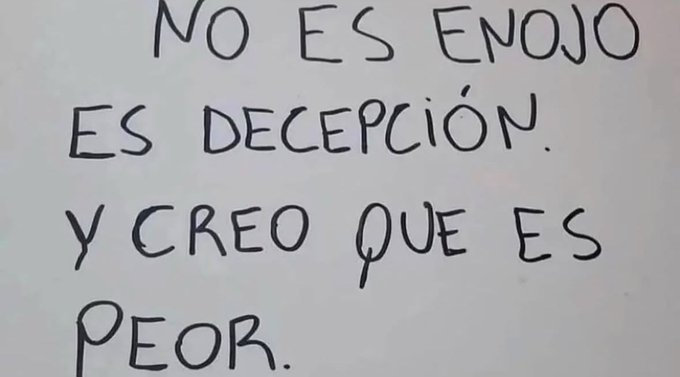 NO ES ENOJO
ES DECEPCIÓN.
Y CREO QUE ES
PEOR.